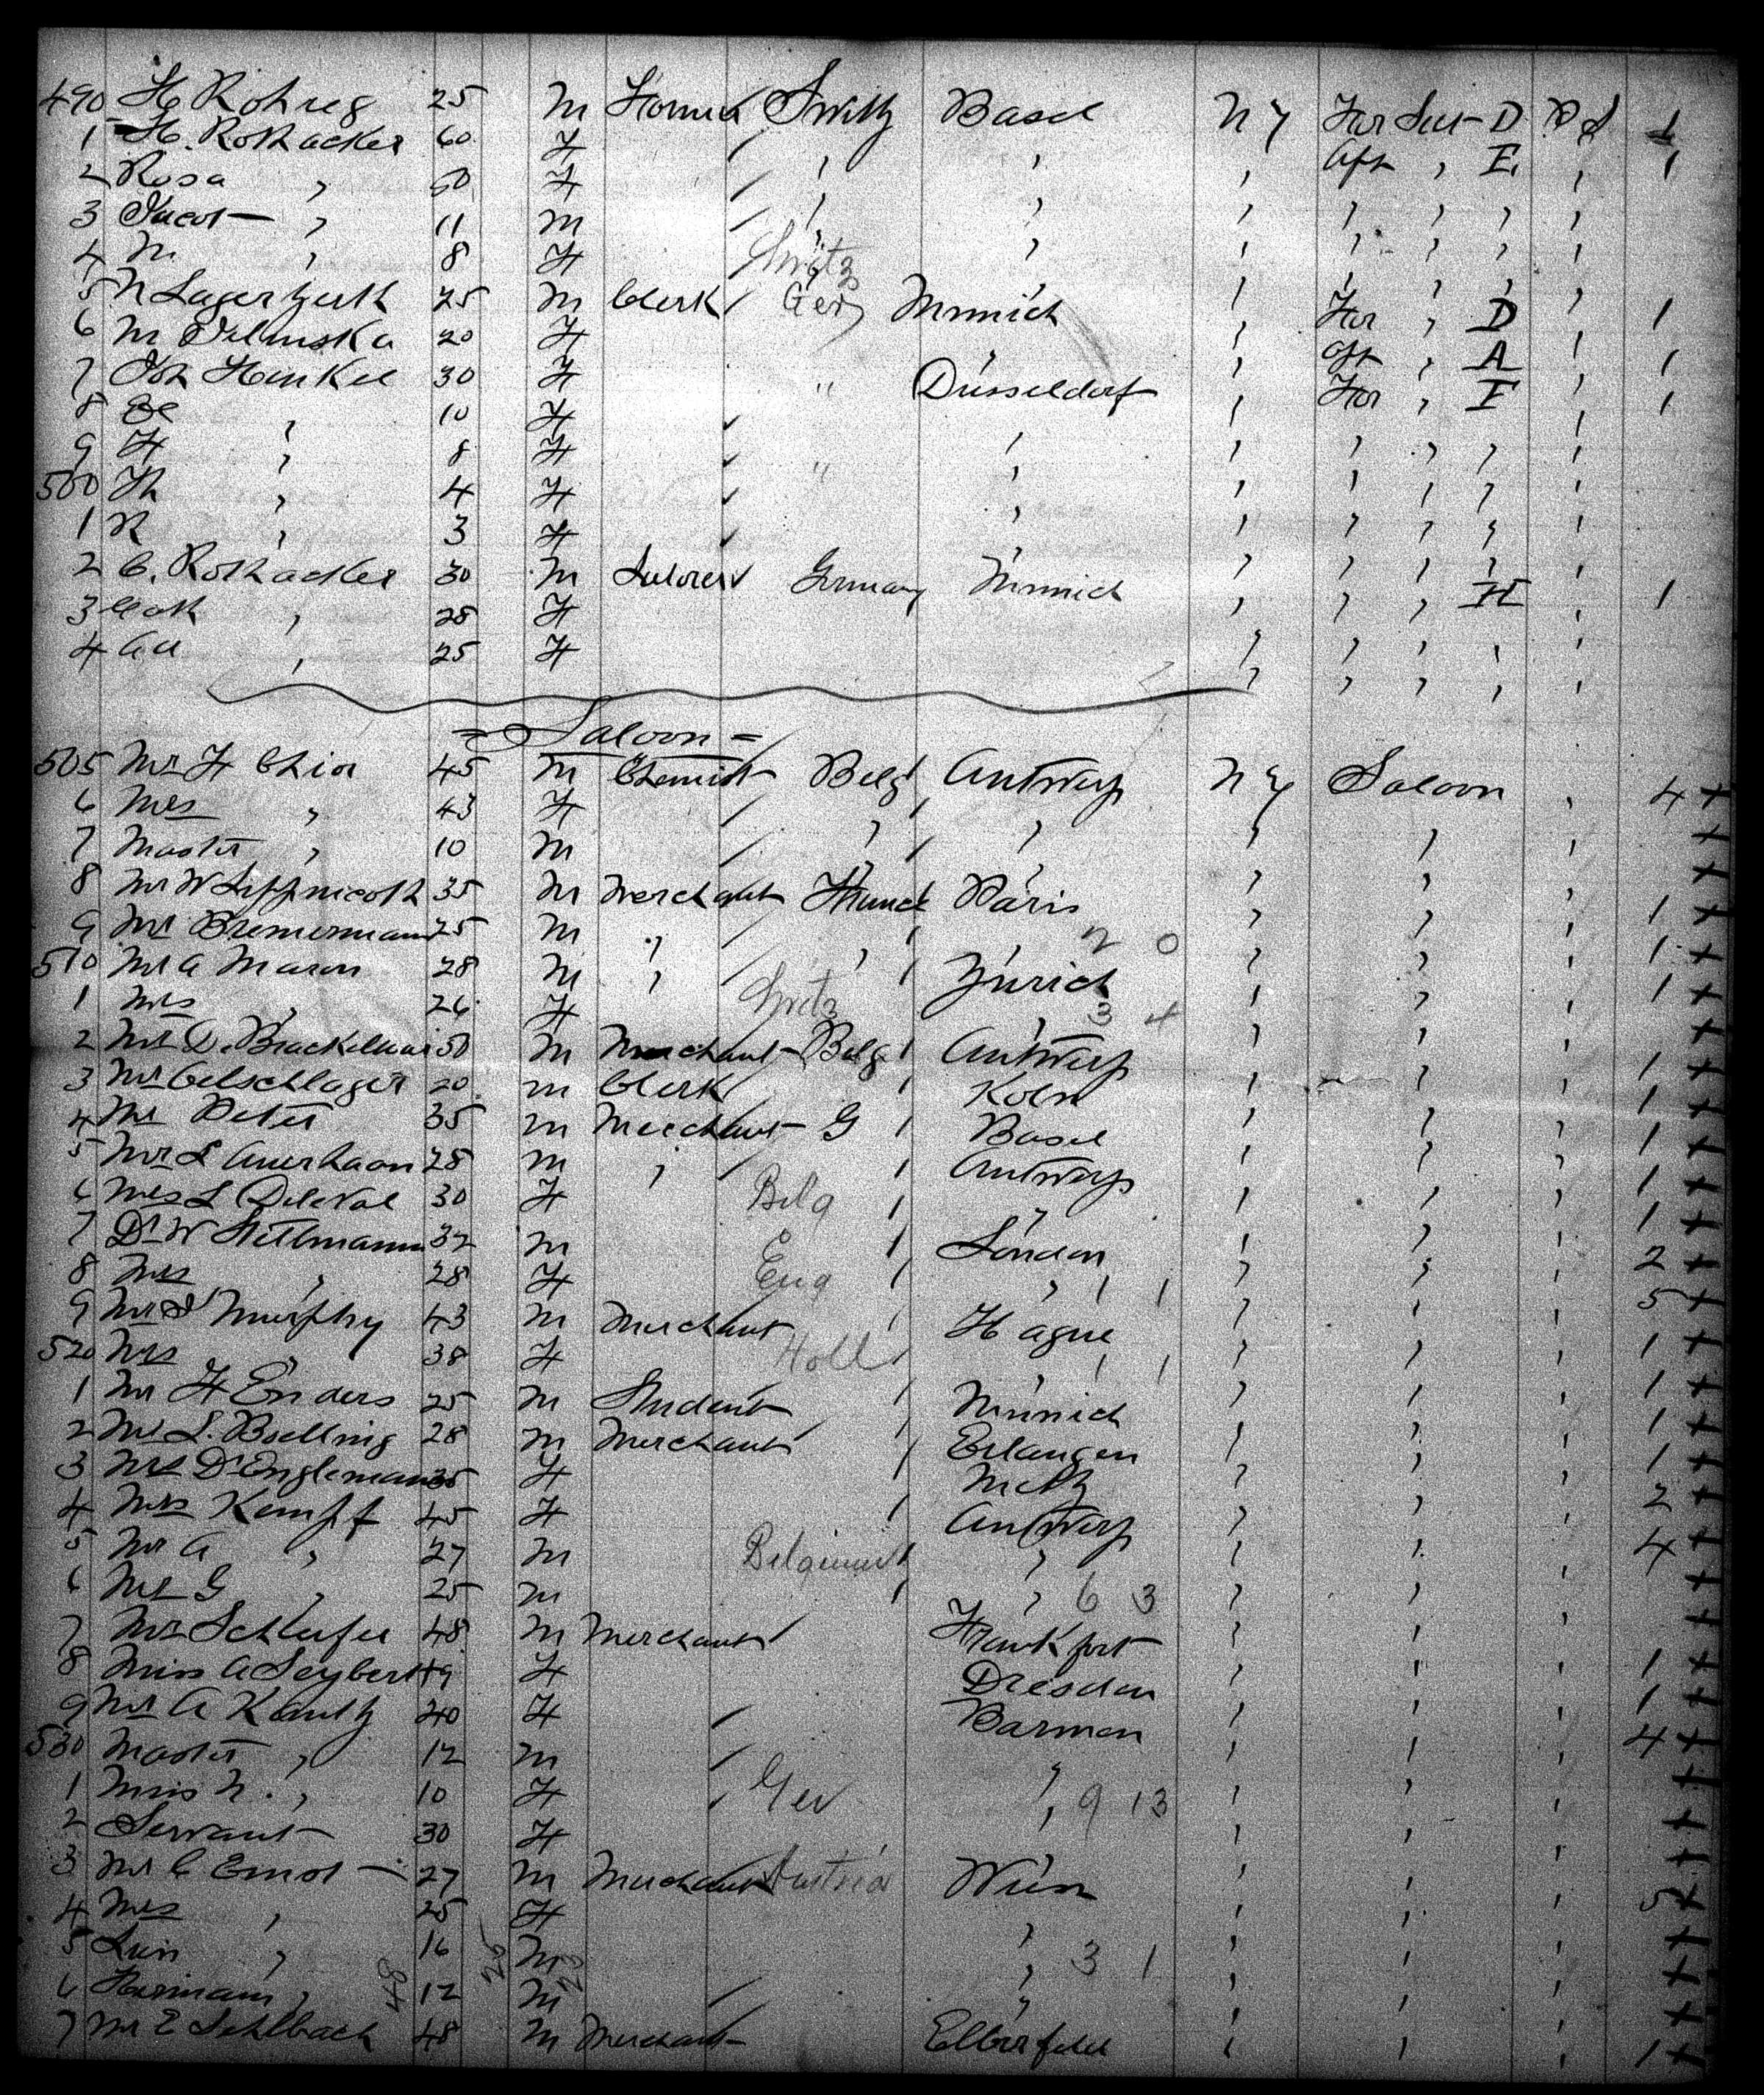 490 H Rohreg 25 M Farmer Switz Basel N Y For Sec D 1
1 H. Rothacker 60 F , , , Aft , E , 1
2 Rosa , 50 F , , , , , , ,
3 Jacob , 11 M , , , , , , ,
4 M , 8 F Switz , , , , , ,
5 N Lagerhzuth 25 M Clerk Ger Munich , For , D , 1
6 M 20 F , , Aft , A , 1
7 Joh Henkel 30 F " Düsseldorf , For , F , 1
8 , 10 F , , , , , ,
9 F , 8 F " , , , , , ,
500 Th , 4 F , , , , , ,
1 R , 3 F , , , , , ,
2 C. Rothacker 30 M Germany Munich , , , H , 1
3 Cath , 28 F , , , , ,
4 , 25 F , , , , ,
= Saloon =
505 Mr F Chia 45 M Chemist Belg Antwerp N Y Saloon , 4
6 Mrs , 43 F , , , , ,
7 Master , 10 M , , , , ,
8 Mr W Lippincott 35 M Merchant French Paris , , , 1
9 Mr Bremermann 25 M , , 2 0 , , , 1
510 Mr A Maron 28 M , Zürich , , , 1
1 Mrs , 26 F Switz , 3 4 , , ,
2 Mr 50 M Merchant Belg Antwerp , , , 1
3 Mr Oelschlager 20 M Clerk Koln , , , 1
4 Mr Peter 35 M Merchant G Basel , , , 1
5 Mr L Auerhaan 28 M , Antwerp , , , 1
6 Mrs L Delvat 30 F Belg , , , , 1
7 Dr W Stillmann 32 M London , , , 2
8 Mrs , 28 F Eng , 1 1 , , , 5
9 Mr Murphy 43 M Merchant Hague , , , 1
520 Mrs , 38 F Holl , 1 1 , , , 1
1 Mr F Enders 25 M Student Munich , , , 1
2 Mr L. Boelling 28 M Merchant Erlangen , , , 1
3 Mrs Dr Englemann 35 F Metz , , , 2
4 Mrs Kempf 45 F Antwerp , , , 4
5 Mr A , 27 M Belgium , , , ,
6 Mr G , 25 M , 6 3 , , ,
7 Mr Schlefer 48 M Merchant Frankfort , , , 1
8 Miss A Seybert 19 F Dresden , , , 1
9 Mrs A Kautz 40 F Barmen , , , 4
530 Master , 12 M , , , ,
1 Miss N. , 10 F Ger , 9 13 , , ,
2 Servant 30 F , , ,
3 Mr C Ernst 27 M Merchant Austria Wien , , , 5
4 Mrs , 25 F , , , ,
5 , 16 M , 3 1 , , ,
6 Hermann , 12 M , , , ,
7 Mr E Sehlbach 48 M Merchant Elberfeld , , , 1